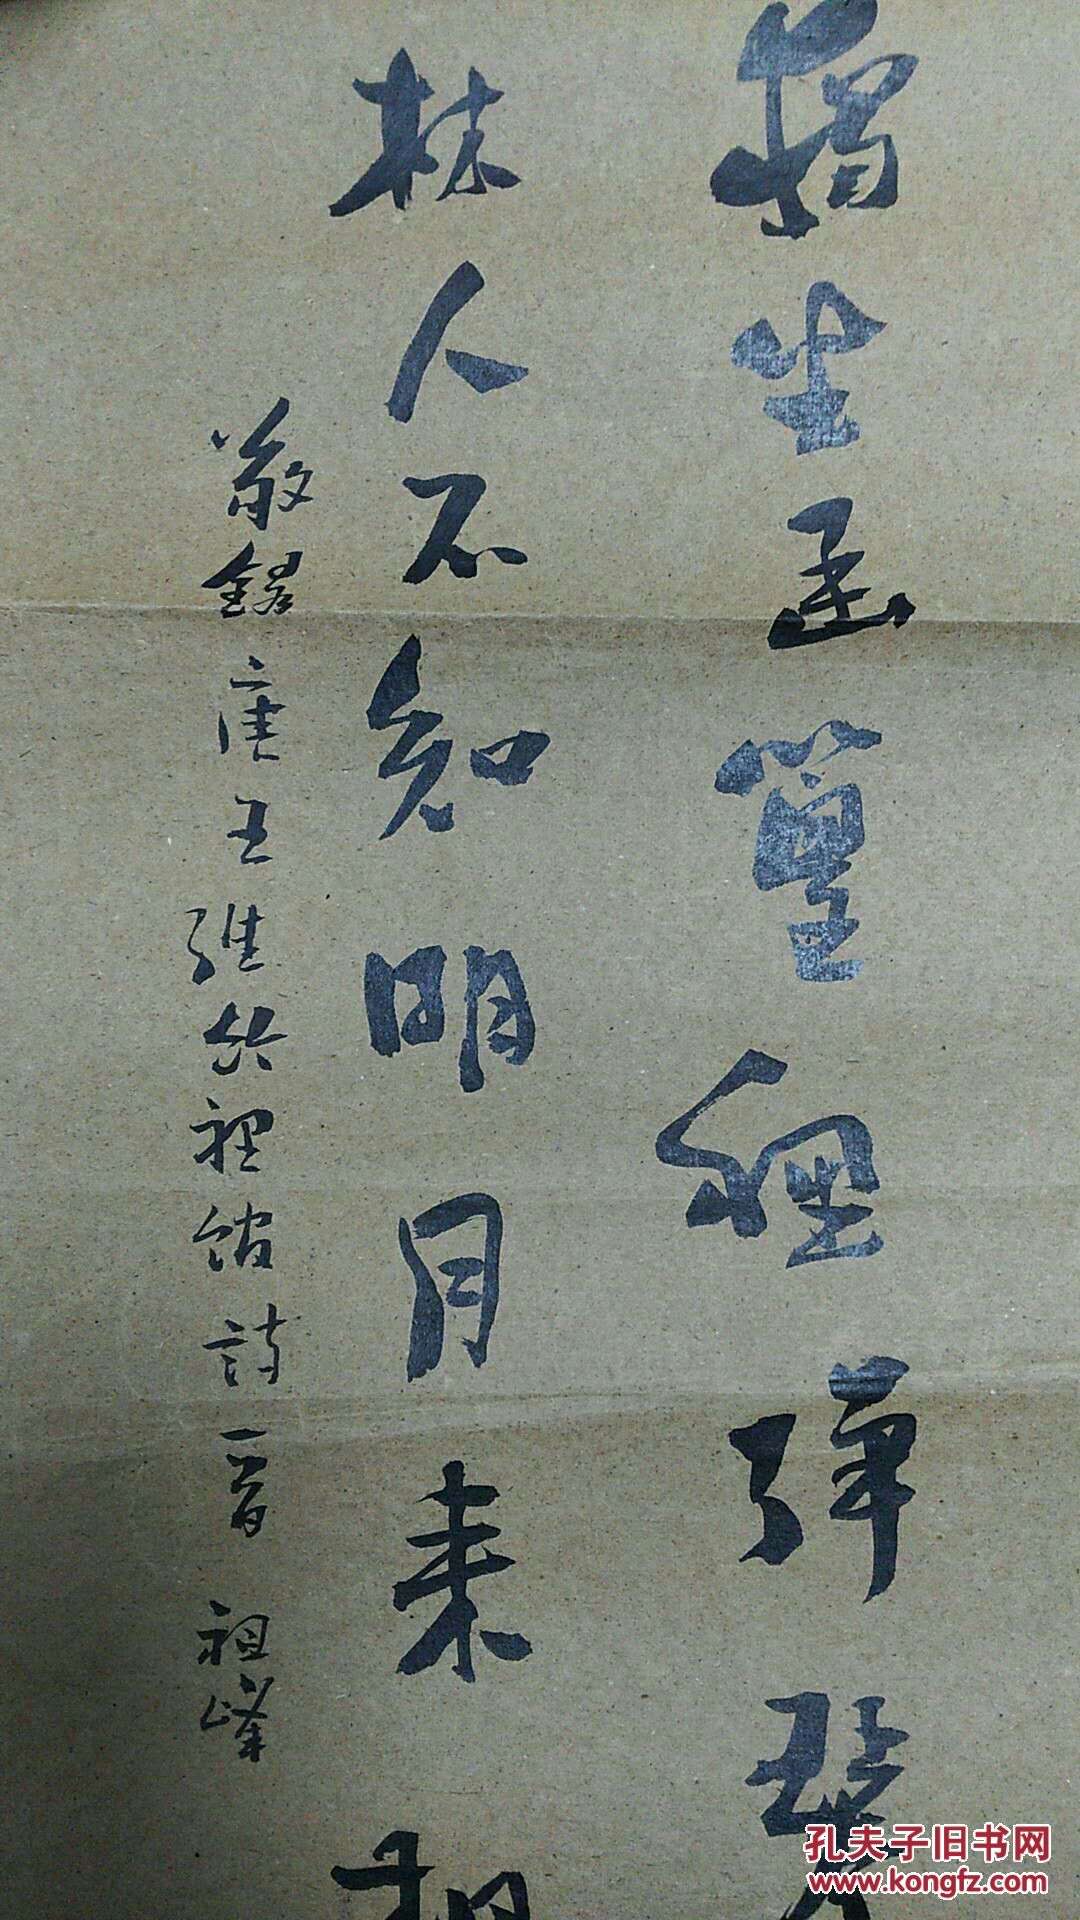 獨坐幽篁裡彈琴
林人不知明月来相
敬錄唐王維竹裡館詩一首 祖峰
孔夫子旧书网
www.kongfz.com